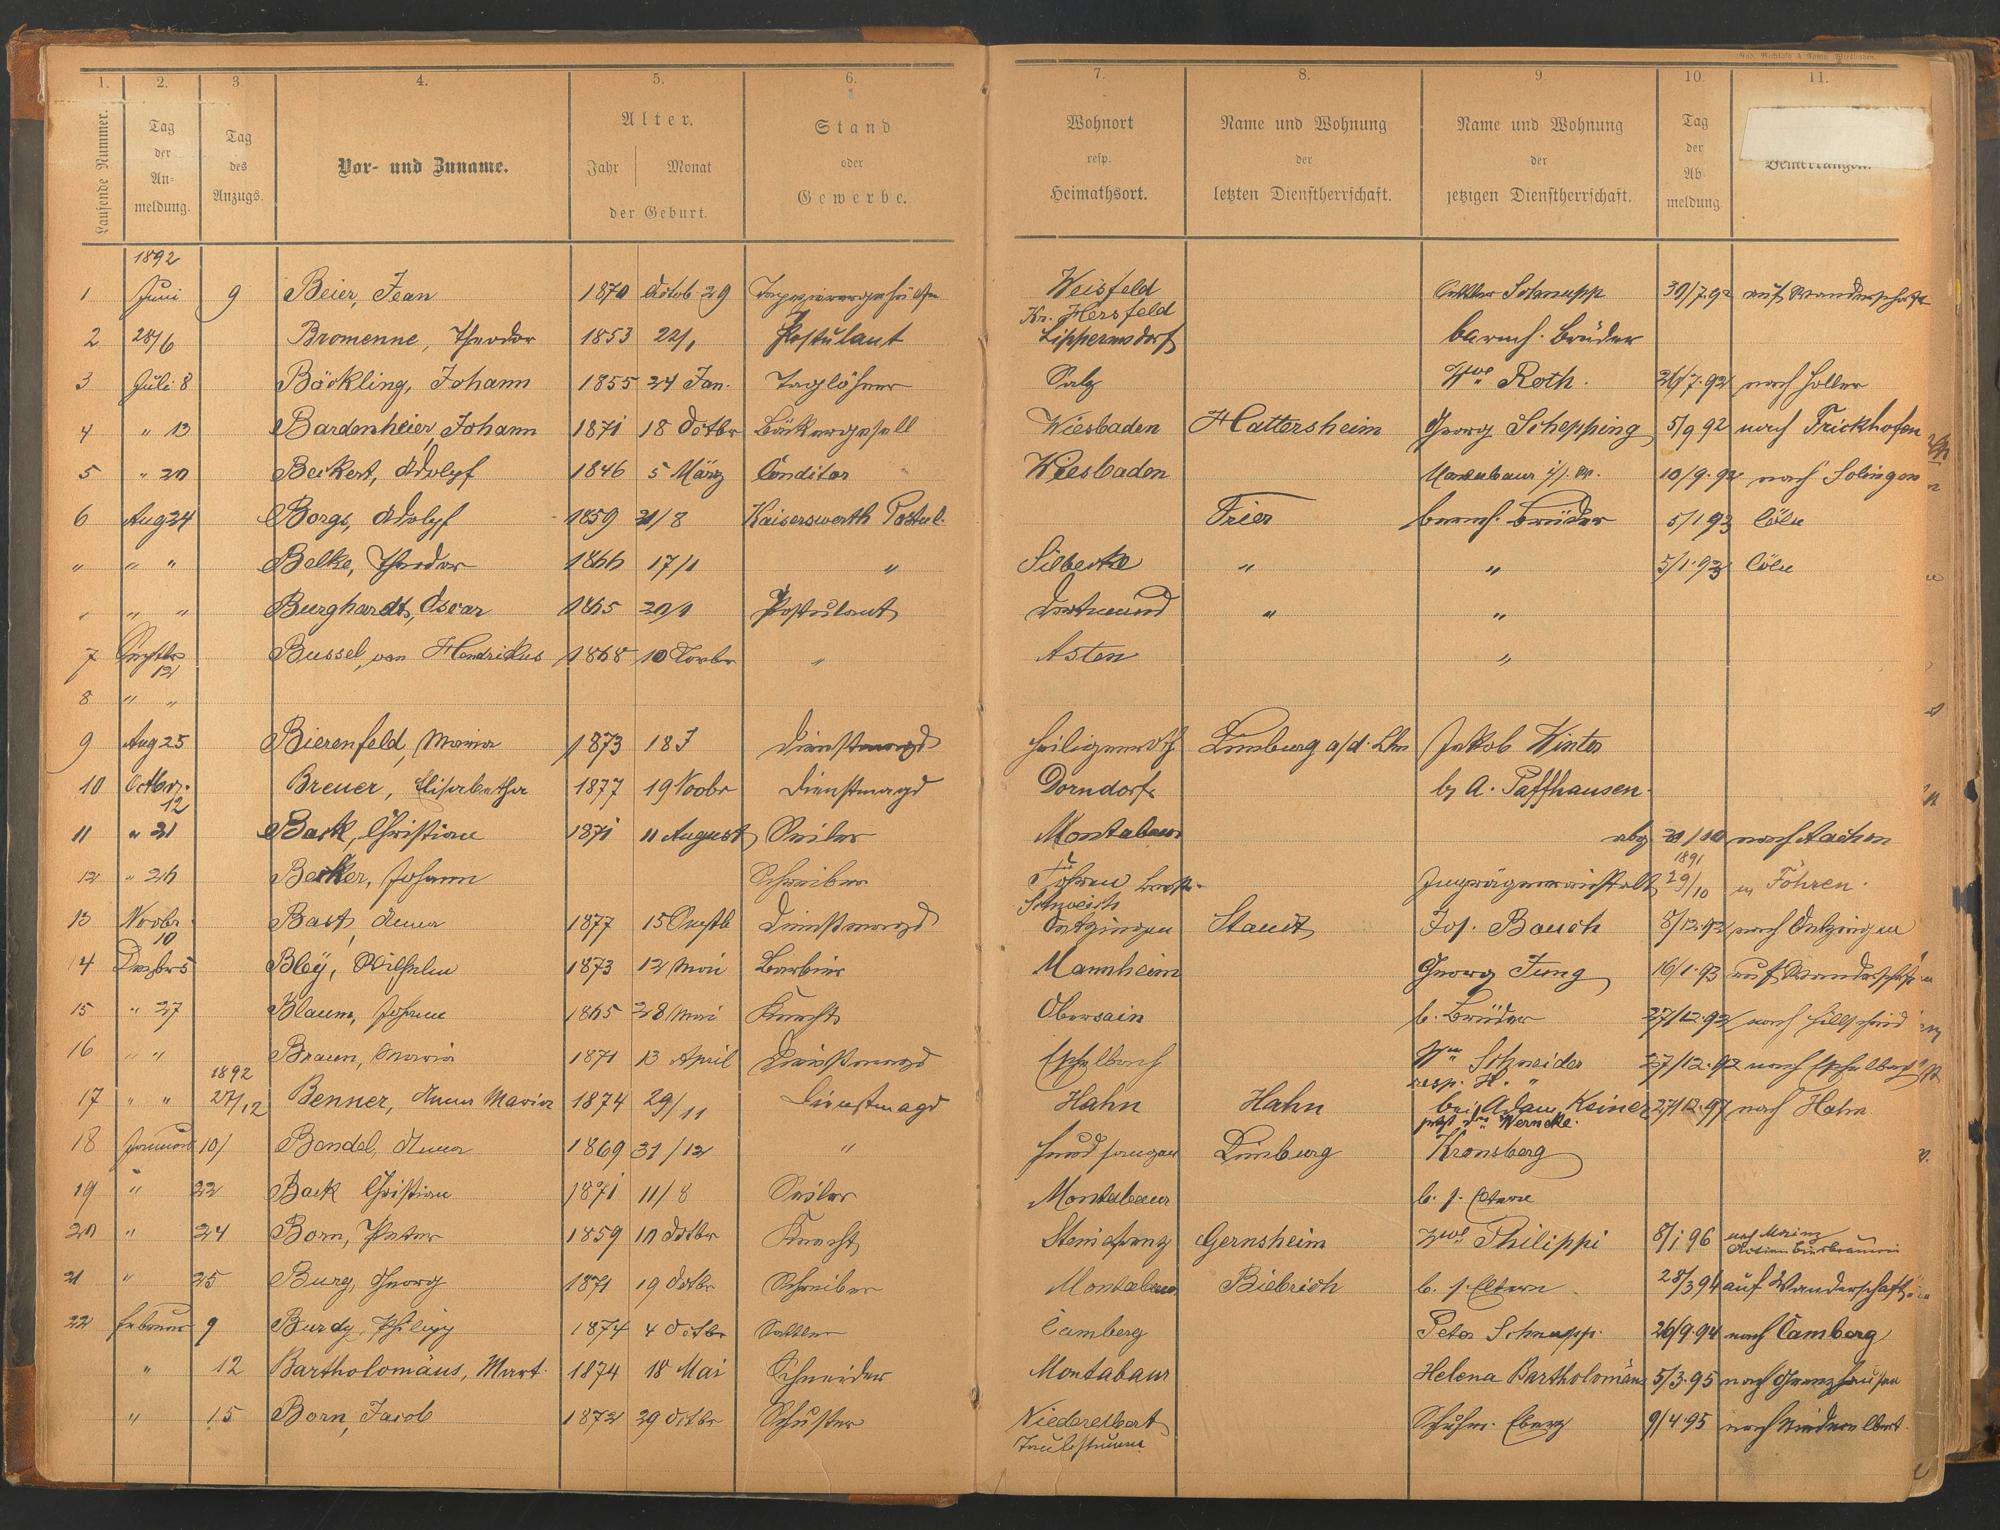 1. 2. 3. 4. 5. 6. 7. 8. 9. 10. 11.
Laufende Nummer.
Tag der An-meldung.
Tag des Anzugs.
Vor- und Zuname.
Alter.
Jahr Monat
der Geburt.
Stand oder Gewerbe.
Wohnort resp. Heimathsort.
Name und Wohnung der letzten Dienstherrschaft.
Name und Wohnung der jetzigen Dienstherrschaft.
Tag der Ab meldung
Bemerkungen.
1892
1 Juni 9 Beier, Jean 1870 Octob. 29 Weisfeld Kr. Hersfeld Schnupp 30/7.92 auf Wanderschaft
2 28/6 Bromenne, Theodor 1853 22/1 Postulant Lippermsdorf barmh. Brüder
3 Juli 8 Böckling, Johann 1855 24 Jan. Taglöhner Salz Wwe Roth. 26/7.92 nach Holler
4 " 13 Bardenheier, Johann 1871 18 Octbr Bäckergesell Wiesbaden Hattersheim Georg Schepping 5/9 92 nach Frickhofen
5 " 20 Beckert, Adolf 1846 5 März Conditor Wiesbaden 10/9.92 nach Solingen
6 Aug 24 Borgs, Adolf 1859 31/8 Kaiserswerth Postul. Trier barmh. Brüder 5/1 93 Cöln
" " " Belke, Theodor 1866 17/1 " Silbecke " " 5/1.93 Cöln
" " " Burghardt, Oscar 1865 20/1 Postulant Dortmund " "
7 Septbr 12 Bussel, van Hendrikus 1868 10 " Asten "
8 " "
9 Aug 25 Bierenfeld, Maria 1873 18 J Dienstmagd Heiligenroth Limburg a/d. Lhn Jakob Winter
10 Octbr. 12 Breuer, Elisabetha 1877 19 Novbr Dienstmagd Dorndorf b. A. Paffhausen.
11 " 21 Back, Christian 1871 11 August Seiler Montabaur abg 21/10 nach Aachen
12 " 26 Becker, Johann Schreiber Föhren Schweich 1891 29/10 n Föhren.
13 Novbr. 10 Bast, Anna 1877 15 Septb Dienstmagd Oetzingen Staudt Jos. Bauch 8/12.92 nach Oetzingen
14 Dezbr 5 Bleÿ, Wilhelm 1873 12 Mai Barbier Mannheim Georg Jung 16/1.93 auf Wanderschaft
15 " 27 Blaum, Johann 1865 28 Mai Knecht Obersain b. Brüder 27/12.92 nach Hillscheid
16 " " Braun, Maria 1871 13 April Dienstmagd Eschelbach Schneider resp. H. " 27/12.92 nach Eschelbach
1892
17 " " 27/12 Benner, Anna Maria 1874 29/11 Dienstmagd Hahn Hahn bei Adam Keiner jetzt Werncke. 27/12.97 nach Hahn
18 Januar 10/ Bendel, Anna 1869 31/12 " Hundsangen Limburg Kronsberg
19 " 22 Back Christian 1871 11/8 Seiler Montabaur b. s. Eltern
20 " 24 Born, Peter 1859 10 Octbr Knecht Steinefrenz Gernsheim Wwe Philippi 8/1 96 nach Mainz Actien Bierbrauerei
21 " 25 Burg, Georg 1871 19 Octbr Schreiber Montabaur Biebrich b. s. Eltern 28/3 94 auf Wanderschaft
22 Februar 9 Burdy, Philipp 1874 4 Octbr Sattler Camberg Peter Schnupp. 26/9.94 nach Camberg
" 12 Bartholomäus, Mart. 1874 18 Mai Schneider Montabaur Helena Bartholomäus 5/3.95 nach Grenzhausen
" 15 Born, Jacob 1872 29 Octbr Schuster Niederelbert Taubstumm Schuhm. 9/4.95 nach Niederelbert.